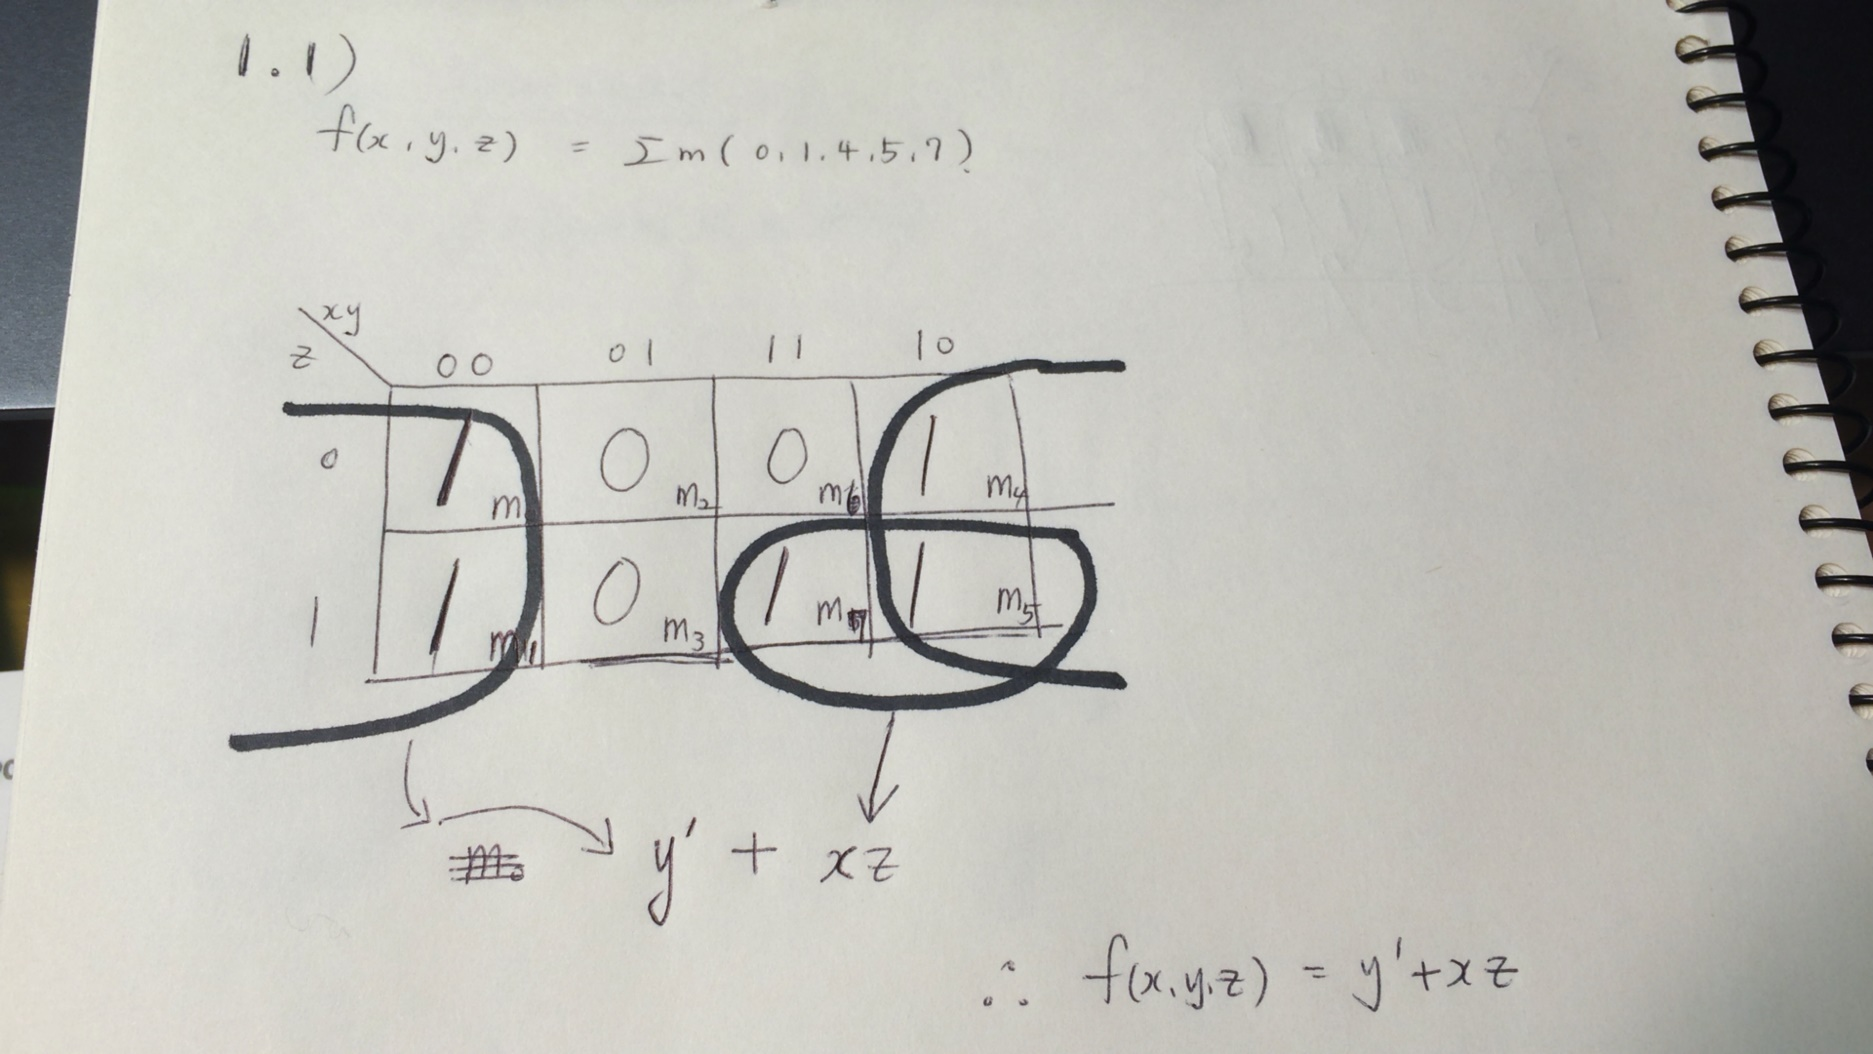 1.1)
f(x, y, z) = Σm(0,1,4,5,7)
xy
z 00 01 11 10
0 1 m 0 m2 0 m6 1 m4
1 1 m1 0 m3 1 m7 1 m5
y' + xz
∴ f(x,y,z) = y'+xz